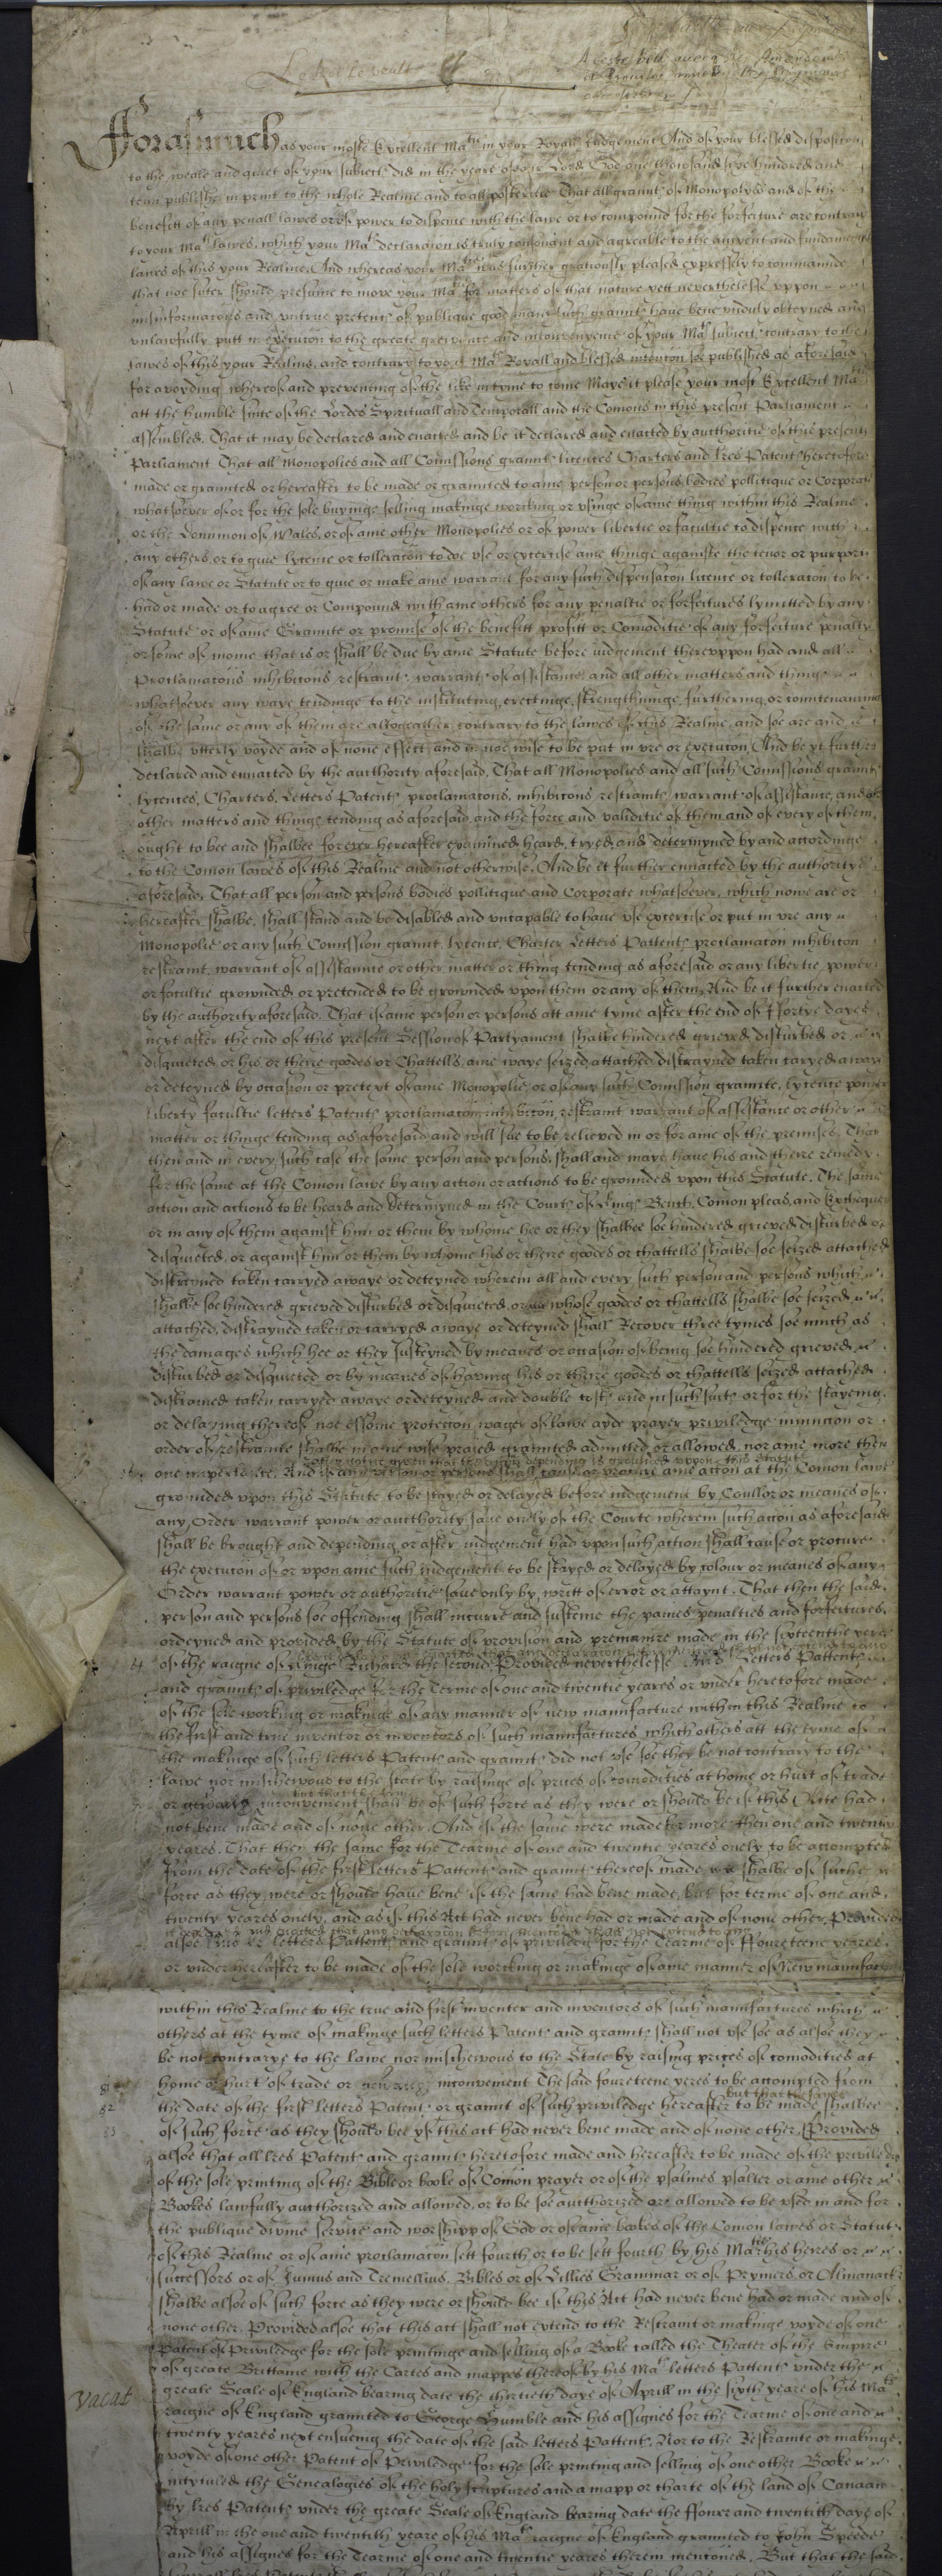 Le Roy le veult
A ceste bill avecqz des Amendements
Fforasmuch as your moste Excellent Matie in your Royall Judgement And of your blessed disposicon
to the weale and quiet of your subiects did in the yeare of our Lord God one thousand sixe hundred and
tenn publishe in print to the whole Realme and to all posteritie That all graunts of Monopolyes and of the
benefitt of any penall lawes or of power to dispence with the lawe or to compound for the forfeiture are contrary
to your Mats lawes, which your Mats declaracon is truly consonant and agreable to the auncyent and fundamentall
lawes of this your Realme. And whereas your Matie was further gratiously pleased expressely to commaunde
that noe suter should presume to move your Matie for matters of that nature yett neverthelesse uppon
misinformacons and untrue pretences of publique good many such graunts have bene unduly obteyned and
unlawfully putt in execucon to the greate greivance and inconvenience of your Mats subiects contrary to the
lawes of this your Realme, and contrary to your Mats Royall and blessed intencon soe published as aforesaid
for avoyding whereof and preventing of the like in tyme to come Maye it please your most Excellent Matie
att the humble suite of the Lordes Spirituall and Temporall and the Comons in this present Parliament
assembled, That it may be declared and enacted and be it declared and enacted by aucthoritie of this present
Parliament That all Monopolies and all Comissions graunts licences Charters and lres Patents heretofore
made or graunted or hereafter to be made or graunted to anie person or persons bodies pollitique or Corporate
whatsoever of or for the sole buyinge selling makinge working or usinge of anie thing within this Realme
or the Dominion of Wales, or of anie other Monopolies or of power libertie or facultie to dispence with
any others, or to give lycence or tolleracon to doe use or exercise anie thinge againste the tenor or purport
of any lawe or Statute or to give or make anie warrant for any such dispensacon licence or tolleracon to be
had or made or to agree or Compound with anie others for any penaltie or forfeitures lymitted by any
Statute or of anie Graunte or promise of the benefitt profitt or Comoditie of any forfeiture penalty
or some of monie that is or shall be due by anie Statute before iudgement thereuppon had and all
Proclamacons inhibicons restraints warrants of assistance and all other matters and things
whatsoever any waye tendinge to the instituting erectinge, strengthninge furthering or countenancing
of the same or any of them are altogeather contrary to the lawes of this Realme, and soe are and
shalbe utterly voyde and of none effect, and in noe wise to be put in ure or execucon, And be yt further
declared and ennacted by the aucthority aforesaid, That all Monopolies and all such Comissions graunts
lycences, Charters, Letters Patents, proclamacons, inhibicons restraints, warrants of assistance, and all
other matters and things tending as aforesaid, and the force and validitie of them and of every of them,
ought to bee and shalbee forever hereafter examined heard, tryed and determyned by and accordinge
to the Comon lawes of this Realme and not otherwise. And be it further ennacted by the authority
aforesaid, That all person and persons bodies pollitique and Corporate whatsoever, which nowe are or
hereafter shalbe, shall stand and be disabled and uncapable to have use exercise or put in ure any
Monopolie or any such Comission graunt, lycence, Charter Letters Pattents proclamacon inhibicon
restraint, warrant of assistannce or other matter or thing tending as aforesaid or any libertie power
or facultie grownded or pretended to be grownded upon them or any of them, And be it further enacted
by the authority aforesaid. That if anie person or persons att anie tyme after the end of ffortye dayes
next after the end of this present Session of Parlyament shalbe hindered greived disturbed or
disquieted or his or there goodes or Chattells anie waye seized attached distrayned taken caryed away
or deteyned by occasion or pretext of anie Monopolie, or of any such Comission graunte, lycence power
liberty facultie letters Patents proclamacon inhibicon, restraint warrant of assistance or other
matter or thinge tending as aforesaid and will sue to be relieved in or for anie of the premises, That
then and in every such case the same person and persons shall and maye have his and there remedy
for the same at the Comon lawe by any action or actions to be grounded upon this Statute. The same
action and actions to be heard and determyned in the Courts of Kings Bench, Comon pleas, and Exchequer
or in any of them against him or them by whome hee or they shalbee soe hindered greived disturbed or
disquieted, or against him or them by whome his or there goodes or chattells shalbe soe seized attached
distrayned taken carryed awaye or deteyned wherein all and every such person and persons which
shalbe soe hindered grieved disturbed or disquieted, or whose goodes or chattells shalbe soe seized
attached, distrayned taken or carryed awaye or deteyned shall Recover three tymes soe much as
the damages which hee or they susteyned by meanes or occasion of being soe hindered grieved
disturbed or disquieted or by meanes of having his or there goodes or chattells seized attached
distrained taken carryed awaye or deteyned and double costs and in such suits or for the stayeing
or delaying thereof noe essoine proteccon wager of lawe ayde prayer priviledge iniunccon or
order of restrainte shalbe in anie wise praied graunted admitted or allowed, nor anie more then
one imperlance. And if any person or persons shall after notice given that the accon depending is grounded uppon this Statute cause or procure anie accon at the Comon lawe
grounded upon this Statute to be stayed or delayed before iudgement by Coullor or meanes of
any Order warrant power or aucthority save onely of the Courte wherein such accon as aforesaid
shall be brought and depending, or after iudgement had upon such action shall cause or procure
the execucon of or upon anie such iudgement to be stayed or delayed by colour or meanes of any
Order warrant power or authoritie save only by writt of error or attaynt. That then the said
person and persons soe offending shall incurre and susteine the paines penalties and forfeitures,
ordeyned and provided by the Statute of provision and premunire made in the sixteenthe yere
of the raigne of Kinge Richard the second. Provided neverthelesse Letters Pattents
and graunts of priviledge for the Terme of one and twentie yeares or under heretofore made
of the sole working or makinge of any manner of new manufacture within this Realme to
the first and true inventor or inventors of such manufactures which others att the tyme of
the makinge of such letters Patents and graunts did not use soe they be not contrary to the
lawe nor mischievous to the state by raisinge of prices of comodities at home or hurt of trade
or generally inconvenient but that the same shall be of such force as they were or should be if this Acte had
not bene made and of none other. And if the same were made for more then one and twenty
yeares. That then the same for the Tearme of one and twentie yeares onely to be accompted
from the date of the first letters Pattents and graunts thereof made shalbe of suche
force as they were or should have bene if the same had bene made, but for terme of one and
twenty yeares onely, and as if this Act had never bene had or made and of none other, Provided
alsoe letters Pattents and graunts of priviledg for the Tearme of ffoureteene yeares
or under hereafter to be made of the sole working or makinge of anie manner of New manufactures
within this Realme to the true and first inventer and inventors of such manufactures which
others at the tyme of makinge such letters Patents and graunts shall not use soe as alsoe they
be not contrarye to the lawe nor mischevous to the State by raising prices of comodities at
home or hurt of trade or generally inconvenient The said foureteene yeres to be accompted from
the date of the first letters Patents or graunt of such priviledge hereafter to be made but that the same shalbee
of such force as they should bee yf this act had never bene made and of none other. Provided
alsoe that all lres Patents and graunts heretofore made and hereafter to be made of the priviledge
of the sole printing of the Bible or booke of Comon prayer or of the psalmes psalter or anie other
Bookes lawfully aucthorized and allowed, or to be soe aucthorized or allowed to be used in and for
the publique divine service and worshipp of God or of anie bookes of the Comon lawes or Statutes
of this Realme or of anie proclamacon sett fourth or to be sett fourth by his Matie his heires or
successors or of Junius and Tremellius Bibles or of Lillies Grammar or of Prymers or Almanacks
shalbe alsoe of such force as they were or should bee if this Act had never bene had or made and of
none other. Provided alsoe that this act shall not extend to the Restraint or makinge voyde of one
Patent of Priviledge for the sole printinge and selling of a Booke called the Theater of the Empire
of greate Brittaine with the Cartes and mappes thereof by his Mats letters Pattents under the
greate Seale of England bearing date the thirtieth daye of Aprill in the sixth yeare of his Mats
vacat
raigne of England graunted to George Humble and his assignes for the Tearme of one and
twenty yeares next ensueing the date of the said letters Pattents, Nor to the Restrainte or makinge
voyde of one other Patent of Priviledge for the sole printing and selling of one other Booke
intytuled the Genealogies of the holy scriptures and a mapp or charte of the land of Canaan
by lres Patents under the greate Seale of England bearing date the ffower and twentith daye of
Aprill in the one and twentith yeare of his Mats raigne of England graunted to John Speede
and his assignes for the Tearme of one and twentie yeares therein mentioned, But that the said